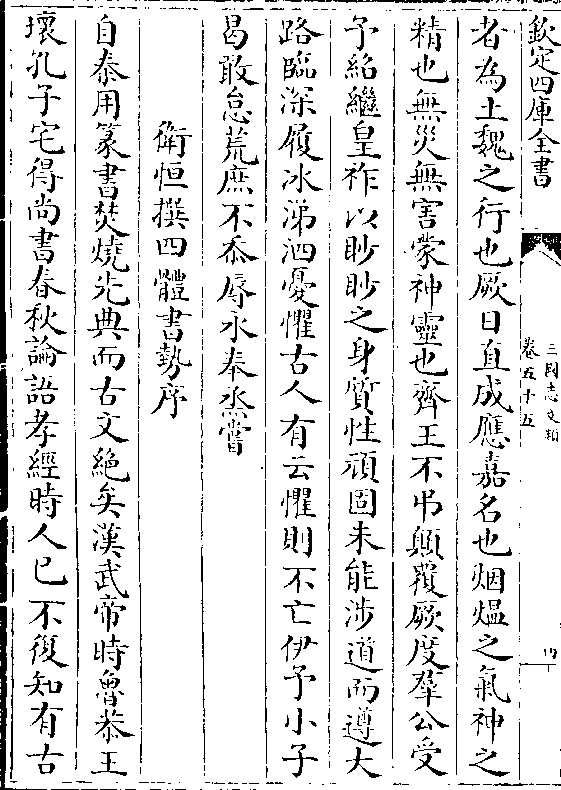 欽定四庫全書
三國志文類
卷五十五
者為土魏之行也厥日直成應嘉名也烟煴之氣神之
精也無災無害蒙神靈也齊王不弔顛覆厥度羣公受
予紹繼皇祚以眇眇之身質性頑固未能涉道而遵大
路臨深履冰涕泗憂懼古人有云懼則不亡伊予小子
曷敢怠荒庶不忝辱永奉烝嘗
衛恒撰四體書勢序
自秦用篆書焚燒先典而古文絕矣漢武帝時魯恭王
壞孔子宅得尚書春秋論語孝經時人已不復知有古